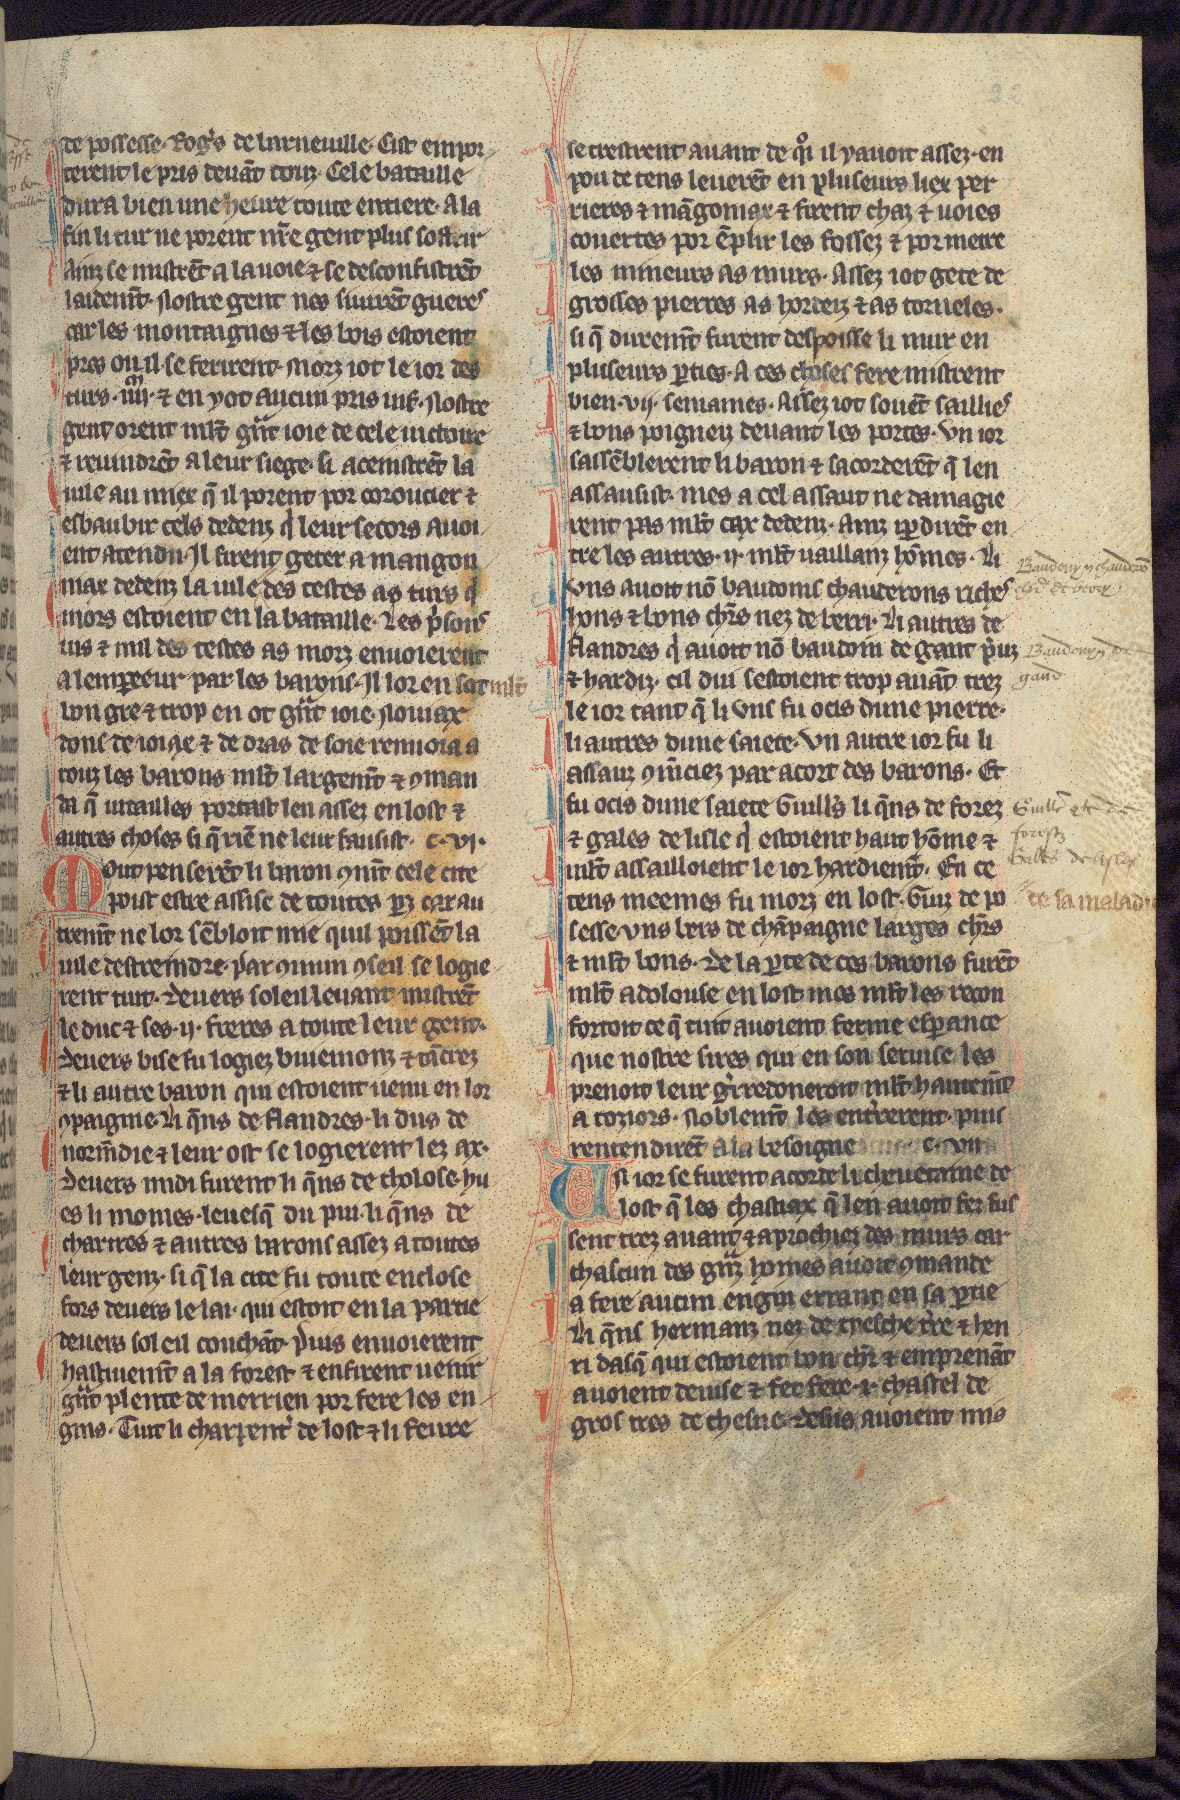 22
de possesse. Rog's de barneuille. Cist empor
terent le pris deuāt touz. Cele bataille
dura bien une heure toute entiere. A la
fin li tur ne porent nr̃e gent plus sofrir
Ainz se mistrēt a la uoie ⁊ se desconfistrēt
laidem̃t. Nostre gent nes siuirēt gueres
car les montaignes ⁊ les bois estoient
pres ou il se ferirent. Morz iot le ior des
turs .iiii.ᵐ ⁊ en yot aucun pris uif. Nostre
gent orent ml̃t gñt ioie de cele uictoire
⁊ reuindrēt a leur siege. si aceinstrēt la
uile au miex q̃ il porent por coroucier ⁊
esbaubir cels dedenz q̇ leur secors auoi
ent atendu. Il firent geter a mangon
niax dedenz la uile des testes as turs q̇
mors estoient en la bataille. Les p̃sons
uis ⁊ mil des testes as morz enuoierent
a lempereeur par les barons. Il lor en sot ml̃t
bon gre ⁊ trop en ot gñt ioie. Nouiax
dons de ioiae ⁊ de dras de soie renuoia a
touz les barons ml̃t largem̃t ⁊ 9man
da q̃ uitailles portast len assez en lost ⁊
autres choses si q̃ riē ne leur fausist. c. vi.
Mout penserēt li baron 9m̃t cele cite
poist estre assise de toutes parz car au
trem̃t ne lor sēbloit mie quil poissēt la
uile destreindre. Par 9mun 9seil se logie
rent tuit. Deuers soleil leuant mistrēt
le duc ⁊ ses .ij. freres a toute leur gent.
Deuers bise fu logiez buiemonz ⁊ tācrez
⁊ li autre baron qui estoient uenu en lor
9paignie. Li q̃ns de flandres. li dus de
norm̃die ⁊ leur ost se logierent lez ax.
Deuers midi furent li q̃ns de tholose. hu
es li moines. leuesq̃ du pui. li q̃ns de
chartres ⁊ autres barons assez a toutes
leur genz. si q̃ la cite fu toute enclose
fors deuers le lai. qui estoit en la partie
deuers soleil couchāt. Puis enuoierent
hastiuem̃t a la forest ⁊ en firent uenir
gñt plente de merrien por fere les en
gins. Tuit li charpent' de lost ⁊ li feure
se trestrent auant de q̊i il yauoit assez. en
pou de tens leuerēt en pluseurs liex per
rieres ⁊ māgoniax ⁊ firent chaz ⁊ uoies
couertes por ēplir les fossez ⁊ por metre
les mineurs as murs. Assez iot gete de
grosses pierres as hordeiz ⁊ as torneles.
si q̃ durem̃t furent despoisse li mur en
pluseurs parties. A ces choses fere mistrent
bien .vij. semaines. Assez iot souēt saillies
⁊ bons poigneiz deuant les portes. Vn ior
sassēblerent li baron ⁊ sacorderēt q̃ len
assausist. mes a cel assaut ne damagie
rent pas ml̃t cax dedenz. Ainz iperdirēt en
tre les autres .ij. ml̃t uaillanz hōmes. Li
vns auoit nō baudoins chauderons riches
hons ⁊ bons chr̃s nez de berri. Li autres de
flandres q̇ auoit nō baudoin de gant preuz
⁊ hardiz. cil dui sestoient trop auāt trez
le ior tant q̃ li vns fu ocis dune pierre.
li autres dune saiete. Vn autre ior fu li
assauz 9m̃ciez par acort des barons. Et
fu ocis dune saiete Guill's li q̃ns de forez
⁊ gales de lisle q̇ estoient haut hōme ⁊
ml̃t assailloient le ior hardiem̃t. En ce
tens meemes fu morz en lost. Guiz de po
sesse. vns bers de chāpaigne larges chr̃s
⁊ ml̃t bons. De la perte de ces barons furēt
ml̃t adolouse en lost mes ml̃t les recon
fortoit ce q̃ tuit auoient ferme esperance
que nostre sires qui en son seruise les
prenoit leur guerredoneroit ml̃t hautem̃t
a toziors. Noblem̃t les enterrerent. puis
rentendirēt a la besoigne c. vii
Un ior se furent acorde li cheuetaine de
lost q̃ les chastiax q̃ len auoit fez fus
sent trez auant ⁊ aprochiez des murs car
chascun des gñz homes auoit 9mande
a fere aucun engin errant en sa partie
Li q̃ns hermanz nez de tyesche terre ⁊ hen
ri dasq̃ qui estoient bon chr̃ ⁊ emprenāt
auoient deuise ⁊ fet fere .i. chastel de
gros tres de chesne. Desus auoient mis
Baudouyn chauderō
chr̃ de berry
Baudouyn de
gand
Guill's cte de
forestz
Galles de lysle
de sa maladie